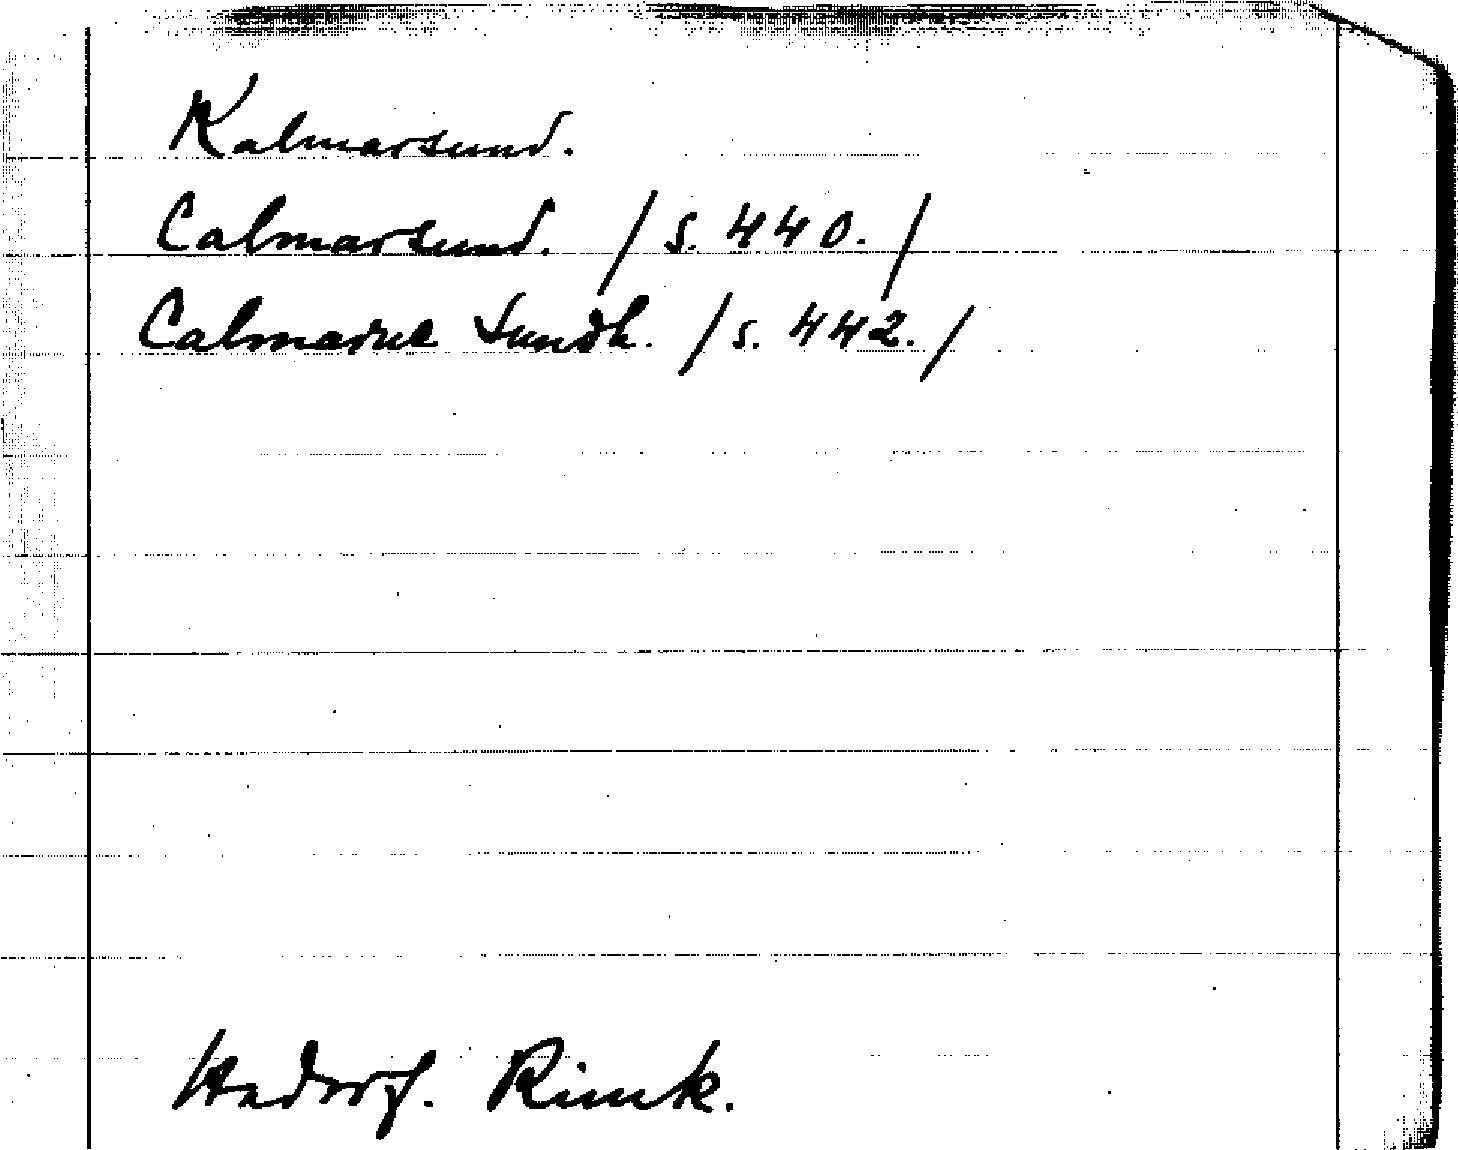 Kalmarsund.
Calmarsund. / s. 440. /
Calmarne Sundh. / s. 442. /
Hadorf. Rimk.